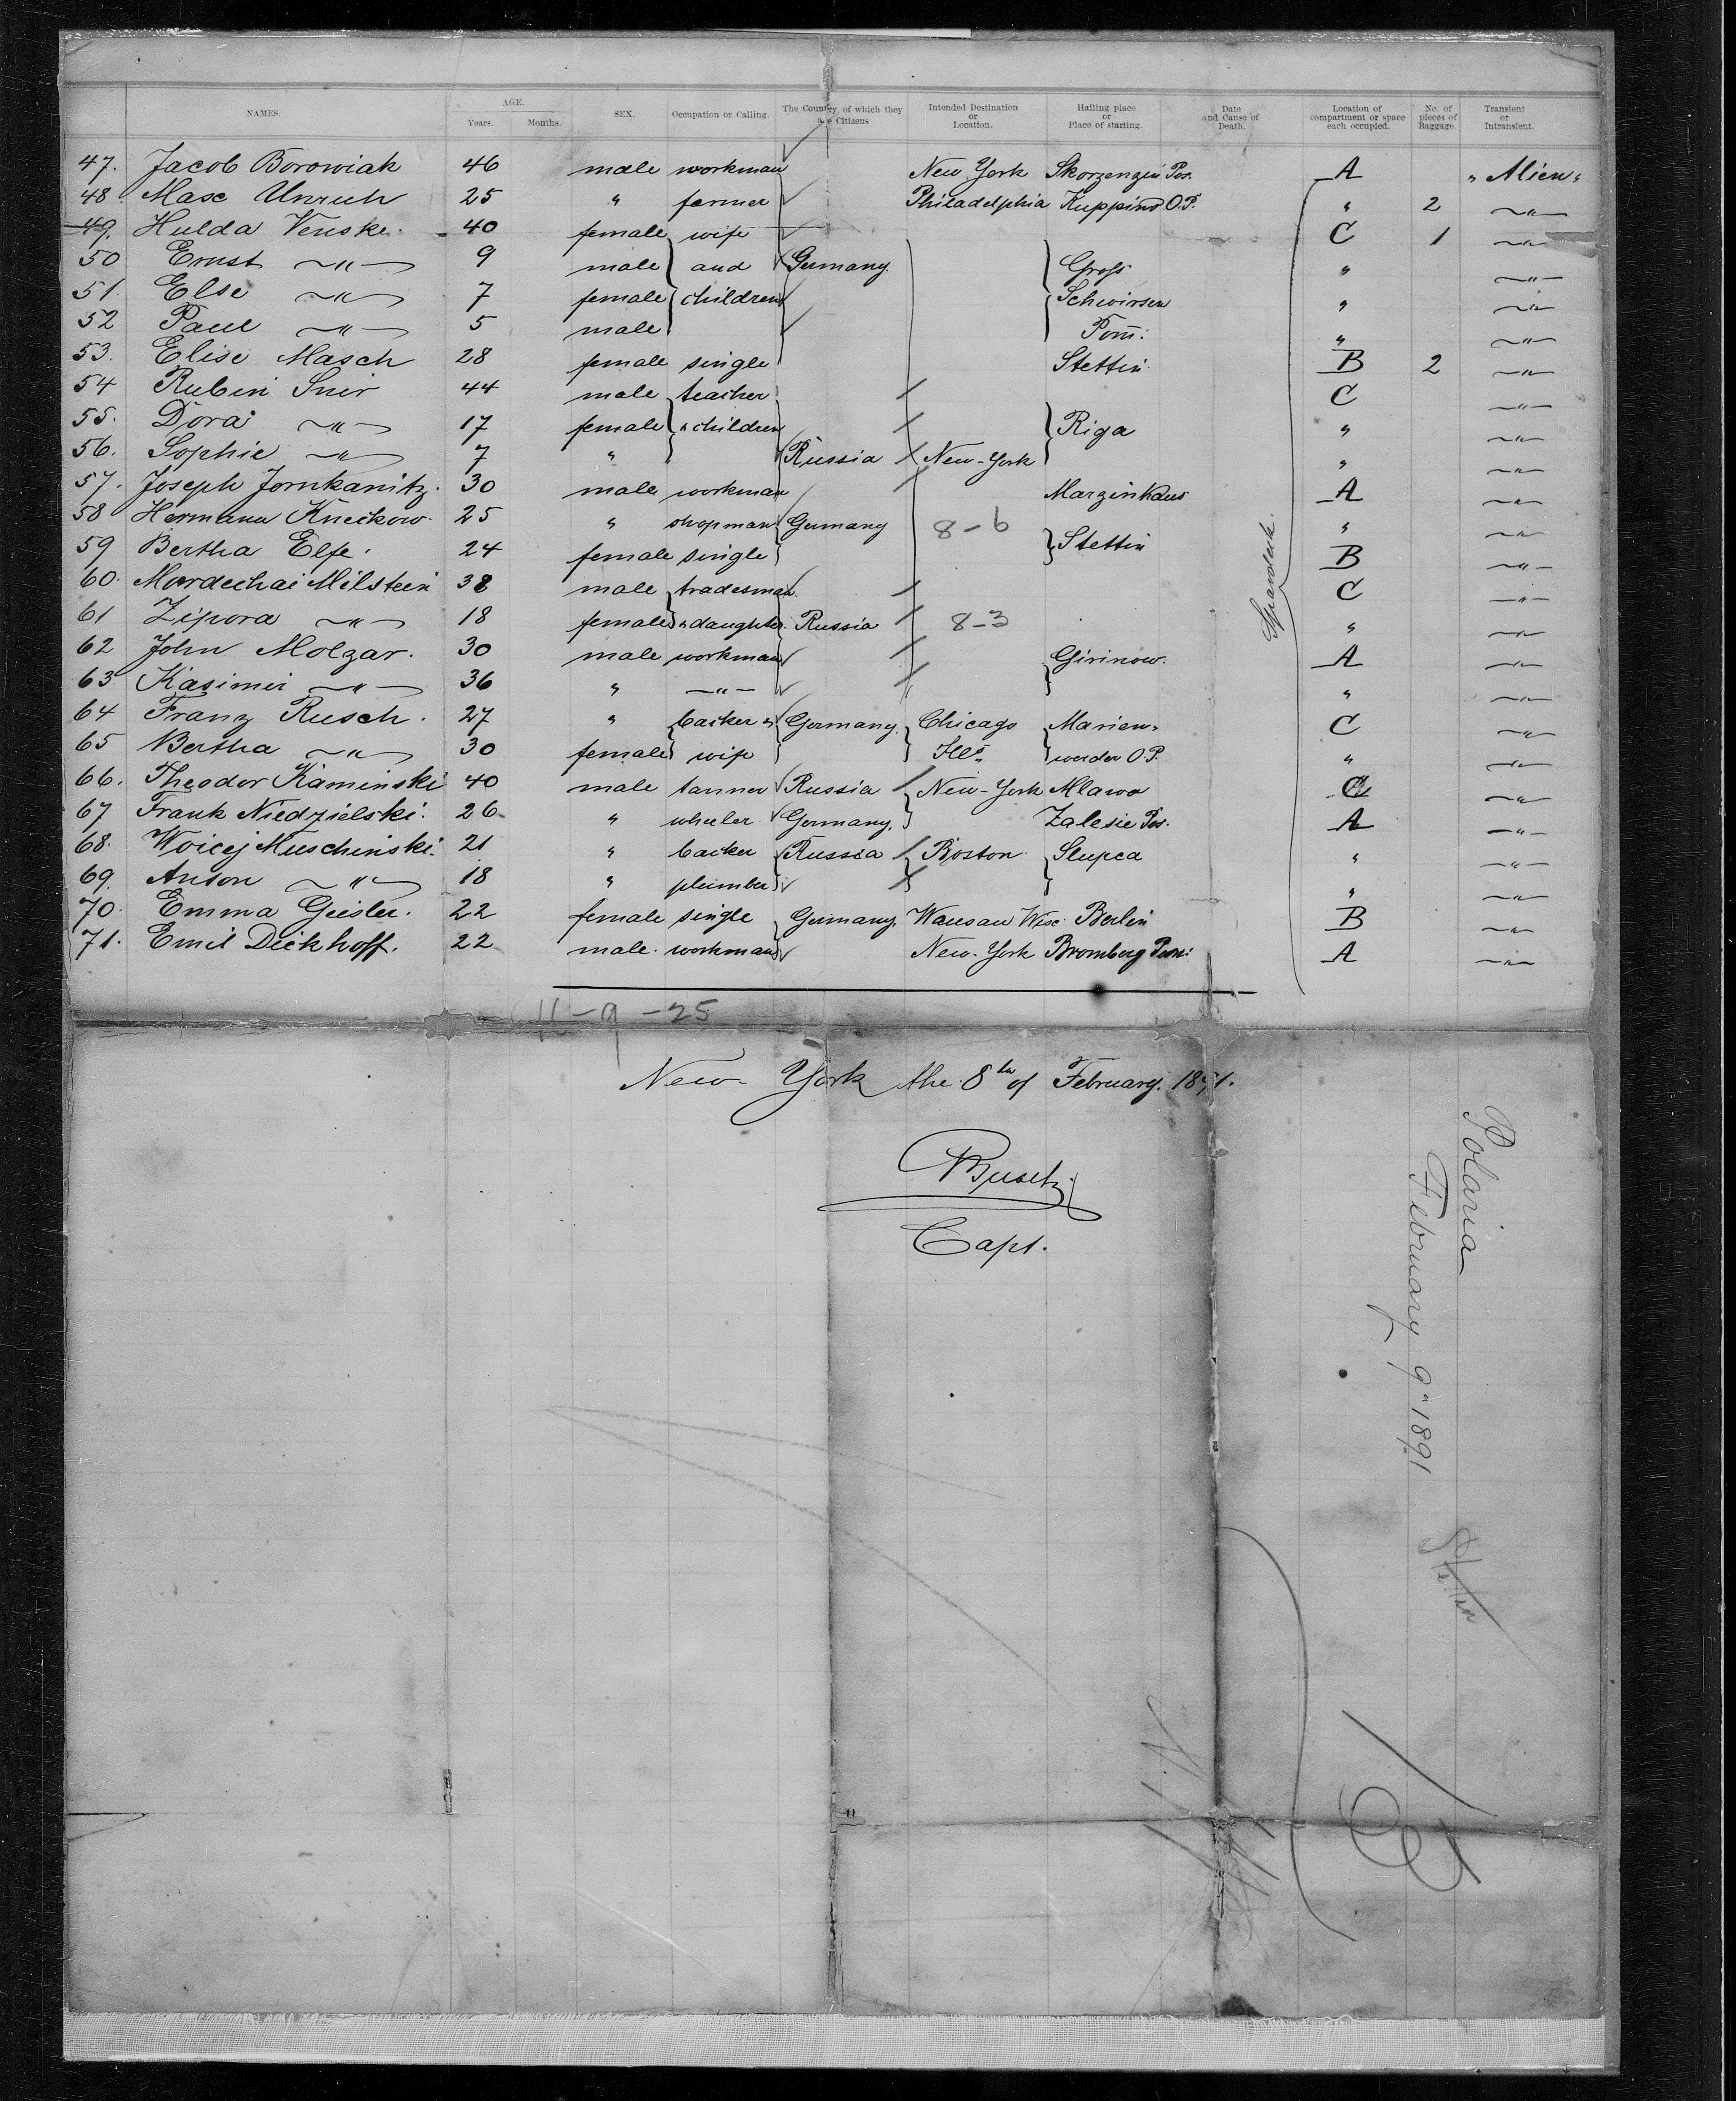 NAMES. AGE. Years. Months. SEX. Occupation or Calling. The Country of which they are Citizens Intended Destination or Location. Hailing place or Place of starting. Date and Cause of Death. Location of compartment or space each occupied. No. of pieces of Baggage. Transient or Intransient.
47. Jacob Borowiak 46 male workman New York Skorzenzin Pos. A " Alien "
48 Max Unruh 25 " farmer Philadelphia Kuppino O.P. " 2 〃
49. Hulda Venske. 40 female wife C 1 〃
50 Ernst 〃 9 male and Germany. Gross " 〃
51. Else 〃 7 female children Schwirsen " 〃
52 Paul 〃 5 male Pom: " 〃
53. Elise Masch 28 female single Stettin B 2 〃
54 Rubin Snir 44 male teacher C 〃
55. Dora 〃 17 female " children Riga " 〃
56. Sophie 〃 7 " " Russia New-York " 〃
57. Joseph Jornkanitz. 30 male workman Marzinkaus A 〃
58 Hermann Kneckow. 25 " shopman Germany 8-6 " 〃
59 Bertha Elfe. 24 female single Stettin B 〃
60. Mordechai Milstein 38 male tradesman C 〃
61 Zipora 〃 18 female " daughter Russia 8-3 " 〃
62 John Molzar. 30 male workman Girinow. A 〃
63. Kasimir 〃 36 " 〃 " 〃
64 Franz Rusch. 27 " backer " Germany. Chicago Marien- C 〃
65 Bertha 〃 30 female wife Ills werder O.P. " 〃
66. Theodor Kaminski 40 male tanner Russia New-York Mlawa C 〃
67 Frank Niedzielski. 26 " wheeler Germany. Zalesie Pos. A 〃
68. Woicej Muschinski. 21 " backer Russia Boston Slupca " 〃
69. Anton 〃 18 " plumber " 〃
70. Emma Geisler. 22 female single Germany. Wausau Wisc. Berlin B 〃
71. Emil Dickhoff. 22 male. workman New-York Bromberg Posn: A 〃
11-9-25
New-York the 8th of February. 1891.
Capt.
Polaria
February 9" 1891
Stettin